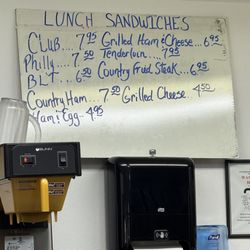 LUNCH SANDWICHES
Club.... 7.95 Grilled Ham & Cheese... 6.95
Philly.... 7.50 Tenderloin... 7.95
BLT... 6.50 Country Fried Steak... 6.95
Country Ham... 7.50 Grilled Cheese... 4.50
Ham & Egg.. 4.95
BUNN